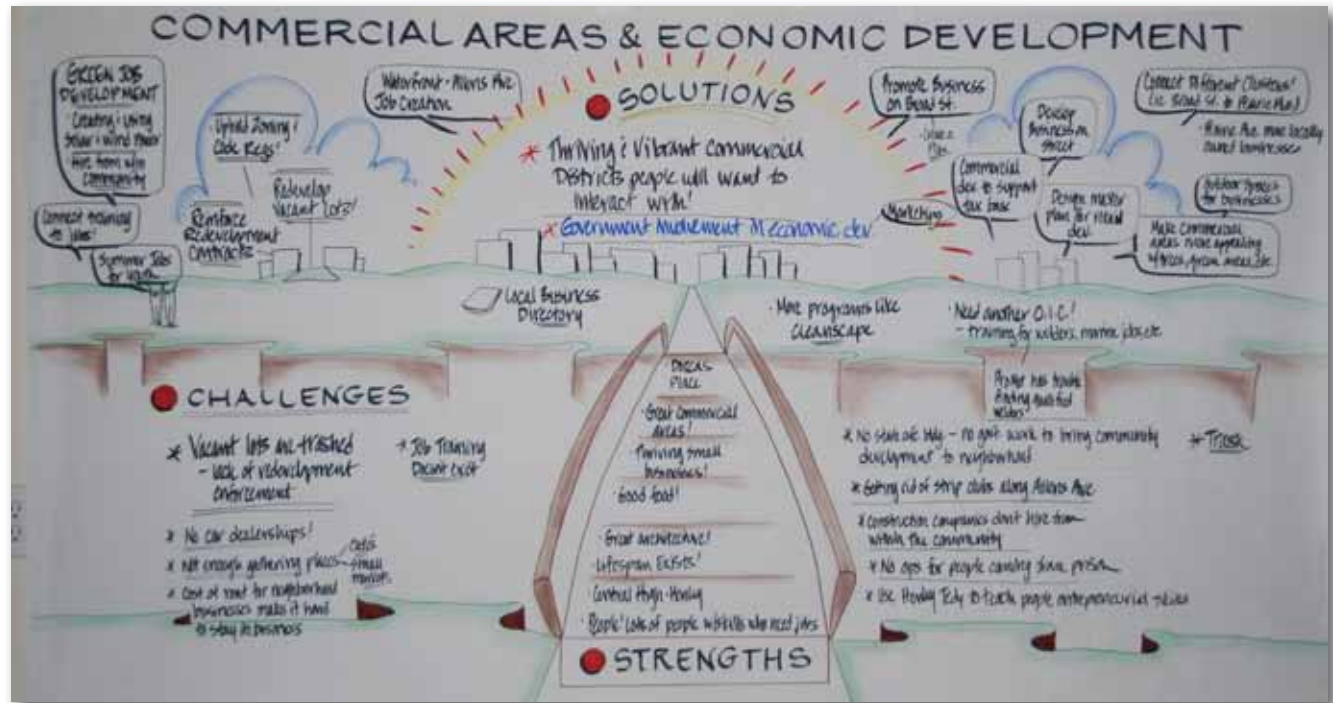 COMMERCIAL AREAS & ECONOMIC DEVELOPMENT
GREEN JOB
DEVELOPMENT
• Creating & using
Solar & Wind Power
• Hire from w/in
community
Connect training
to jobs!
Summer Jobs
for youth
• Uphold Zoning &
Code Regs!
Redevelop
Vacant Lots!
Reinforce
Redevelopment
Contracts
Waterfront - Allens Ave
Job Creation
SOLUTIONS
* Thriving & Vibrant Commercial
Districts people will want to
interact with!
* Government involvement in economic dev
Promote Business
on Broad St.
Marketing
Commercial
dev to support
tax base
Develop
Business on
street
Design master
plan for mixed
dev.
Connect Different Clusters!
(i.e. Broad St. to Prairie Ave)
• Prairie Ave. more locally
owned businesses
Outdoor spaces
for businesses
Make commercial
areas more appealing
w/trees, green areas, etc.
Local Business
Directory
• More programs like
Cleanscape
• Need another O.I.C!
- training for welders, marine jobs, etc
finding qualified
welders
CHALLENGES
* Vacant lots are trashed
- lack of redevelopment
enforcement
* Job Training
Doesn't exist
* No car dealerships!
* Not enough gathering places
cafes
small
markets
* Cost of rent for neighborhood
businesses make it hard
to stay in business
PLACE
• Great commercial
areas!
• Thriving small
businesses!
• Good food!
• Great architecture!
• Lifespan Exists!
• Central High
• People! Lots of people w/skills who need jobs
STRENGTHS
* No state ofc bldg - no govt work to bring community
development to neighborhood
* Trash
* Getting rid of strip clubs along Allens Ave
* Construction companies don't hire from
within the community
* No ops for people coming from prison
to teach people entrepreneurial skills